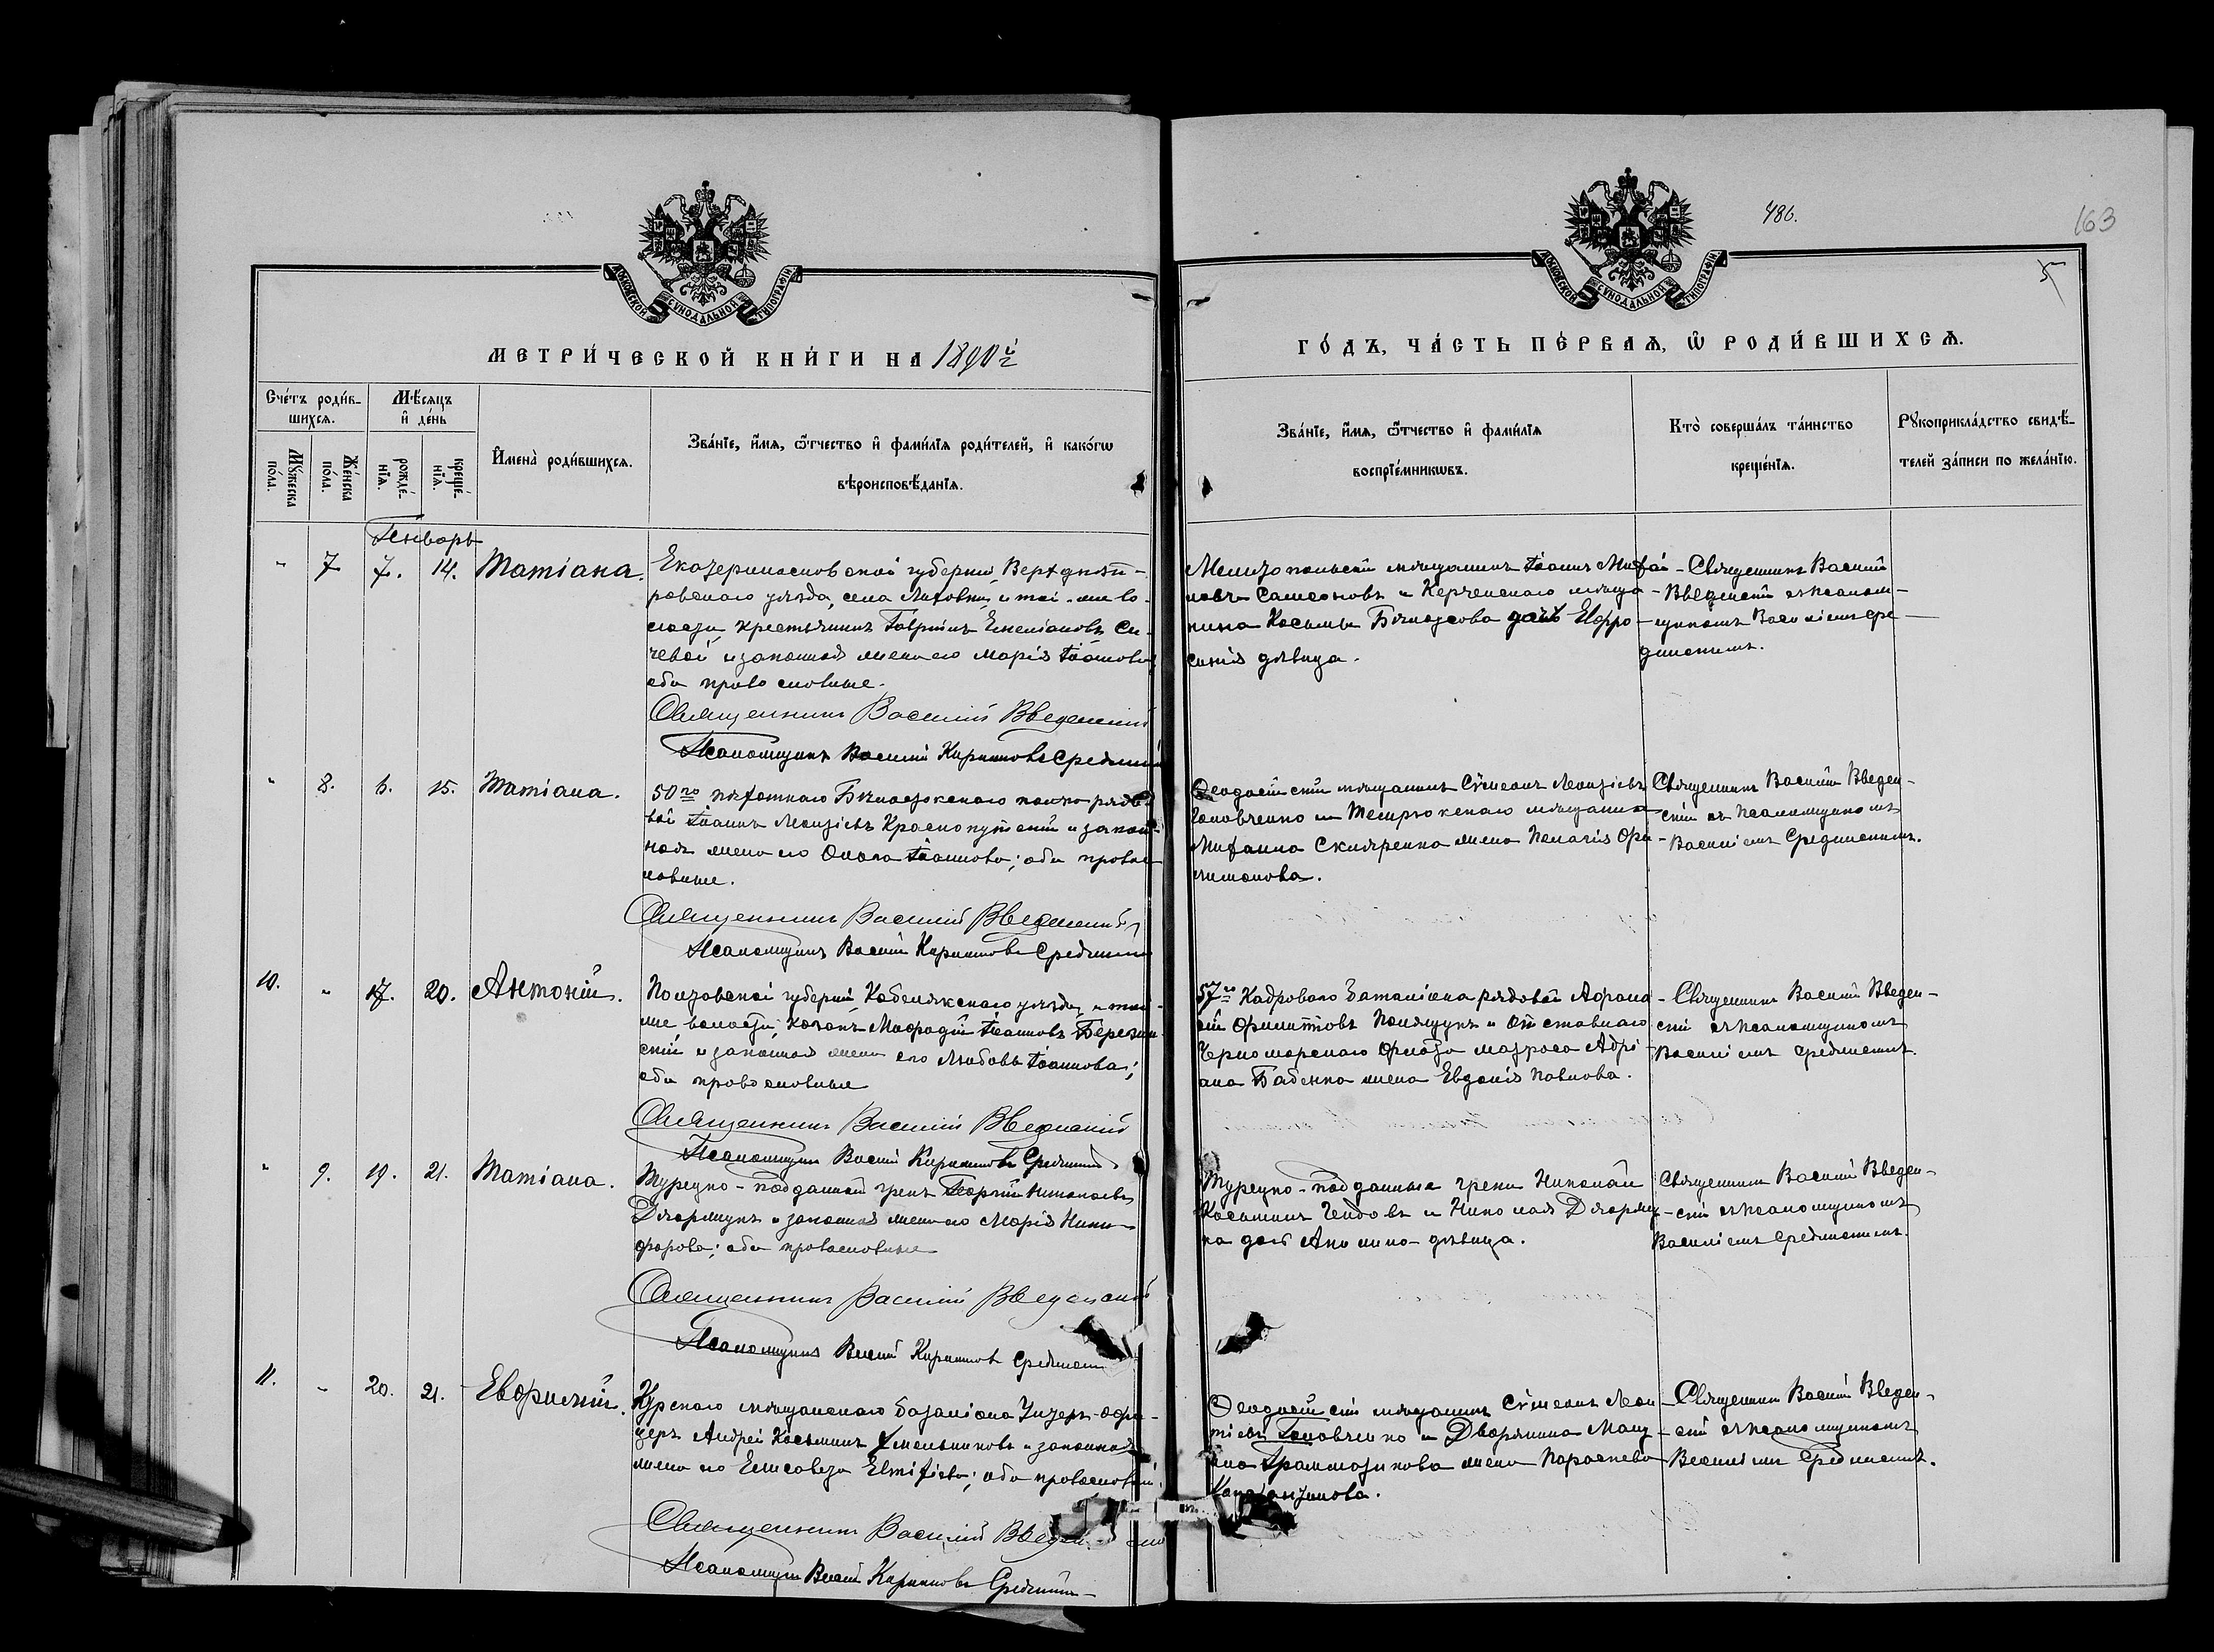 486.
163
5
МОСКОВСКОЙ СѴНОДАЛЬНОЙ ТИПОГРАФІИ
МОСКОВСКОЙ СѴНОДАЛЬНОЙ ТИПОГРАФІИ
МЕТРИ́ЧЕСКОЙ КНИ́ГИ НА 1890й
ГО́ДЪ, ЧА́СТЬ ПЕ́РВАѦ, Ѡ РОДИ́ВШИХСѦ.
Сче́тъ роди́в-
шихсѧ.
Мѣ́сѧцъ
и҆ де́нь
Мꙋ́жеска
по́ла.
Же́нска
по́ла.
рожде́-
нїѧ.
креще́-
нїѧ.
И҆мена̀ роди́вшихсѧ.
Зва́нїе, и҆́мѧ, ѻ҆́тчество и҆ фами́лїѧ роди́телей, и҆ како́гѡ
вѣроисповѣ́данїѧ.
Зва́нїе, и҆́мѧ, ѻ҆́тчество и҆ фами́лїѧ
воспрїе́мникѡвъ.
Кто̀ соверша́лъ та́инство
креще́нїѧ.
Рꙋкоприкла́дство свидѣ́-
телей за́писи по жела́нїю.
Январь
" 7 7. 14. Татіана.
Екатеринославской губерніи, Верхднѣп-
ровскаго уѣзда, села Лиховки, и той-же во-
лости, крестьянинъ Гавріилъ Емеліановъ Си-
чевой и законная жена его Марія Іоаннова
оба православные.
Священникъ Василій Введенскій
Псаломщикъ Василій Кирилловъ Срединскій
Мелитопольскій мѣщанинъ Іоаннъ Михаи-
ловъ Самсоновъ и Керченскаго мѣща-
нина Косьмы дочь Евфро-
синія дѣвица.
Священникъ Василій
Введенскій съ псалом-
щикомъ Василіемъ Сре-
динскимъ.
" 8. 6. 15. Татіана.
50го пѣхотнаго Бѣлостокскаго полка рядо-
вой Іоаннъ Леонтіевъ Краснокутскій и закон-
ная жена его Ѳекла Іоаннова; оба право-
славные.
Священникъ Василій Введенскій
Псаломщикъ Василій Кирилловъ Срединскій
Ѳеодосійскій мѣщанинъ Сѵмеонъ Леонтіевъ
Головченко и Темрюкскаго мѣщанина
Михаила Скляренка жена Пелагія Фи-
лимонова.
Священникъ Василій Введен-
скій съ псаломщикомъ
Василіемъ Срединскимъ.
10. " 17. 20. Антоній.
Полтавской губерніи, Кобелякскаго уѣзда, и той-
же волости, козакъ Мефодій Іоанновъ Березин-
скій и законная жена его Любовь Іоаннова;
оба православные
Священникъ Василій Введенскій
Псаломщикъ Василій Кирилловъ Срединскій
57го Кадроваго баталіона рядовой Афана-
сій Филипповъ Полящукъ и отставнаго
Черноморскаго флота матроса Адрі-
ана Бабенка жена Евдокія Павлова.
Священникъ Василій Введен-
скій съ псаломщикомъ
Василіемъ Срединскимъ.
" 9. 19. 21. Татіана.
Турецко-подданный грекъ Георгій Николаевъ
и законная жена его Марія Ники-
форова; оба православные
Священникъ Василій Введенскій
Псаломщикъ Василій Кирилловъ Срединскій
Турецко-подданные греки Николай
Косьминъ и Николая
дочь дѣвица.
Священникъ Василій Введен-
скій съ псаломщикомъ
Василіемъ Срединскимъ.
11. " 20. 21. Евфимій.
Курскаго мѣстнаго баталіона Унтеръ-офи-
церъ Андрей Косьминъ и законная
жена его Елисавета Евтихіева; оба православные.
Священникъ Василій Введенскій
Псаломщикъ Василій Кирилловъ Срединскій
Ѳеодосійскій мѣщанинъ Сѵмеонъ Леон-
тіевъ Головченко и Дворянина
Грамматикова жена Параскева
Константинова.
Священникъ Василій Введен-
скій съ псаломщикомъ
Василіемъ Срединскимъ.